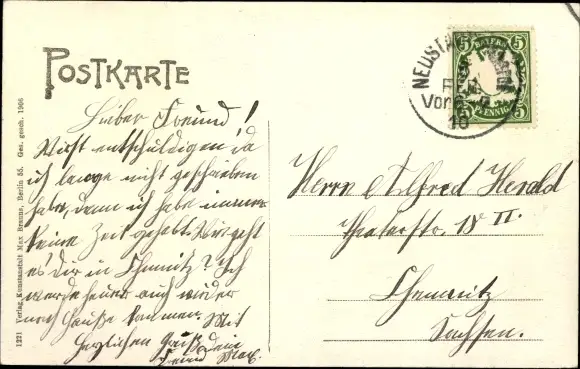 POSTKARTE
Lieber Freund!
Nicht entschuldigen da
ich lange nicht geschrieben
habe, denn ich habe immer
keine Zeit gehabt. Wie geht
es Dir in Chemnitz? Ich
werde heuer auch wieder
nach Hause kommen. Mit
herzlichen Gruß dein
Freund Max.
1221 Verlag Kunstanstalt Max Brauns, Berlin 55. Ges. gesch. 1906
NEUSTA
Vor
10
5 BAYERN 5
PFENNIG
Herrn Alfred Herold
Theaterstr. 18 II.
Chemnitz
Sachsen.